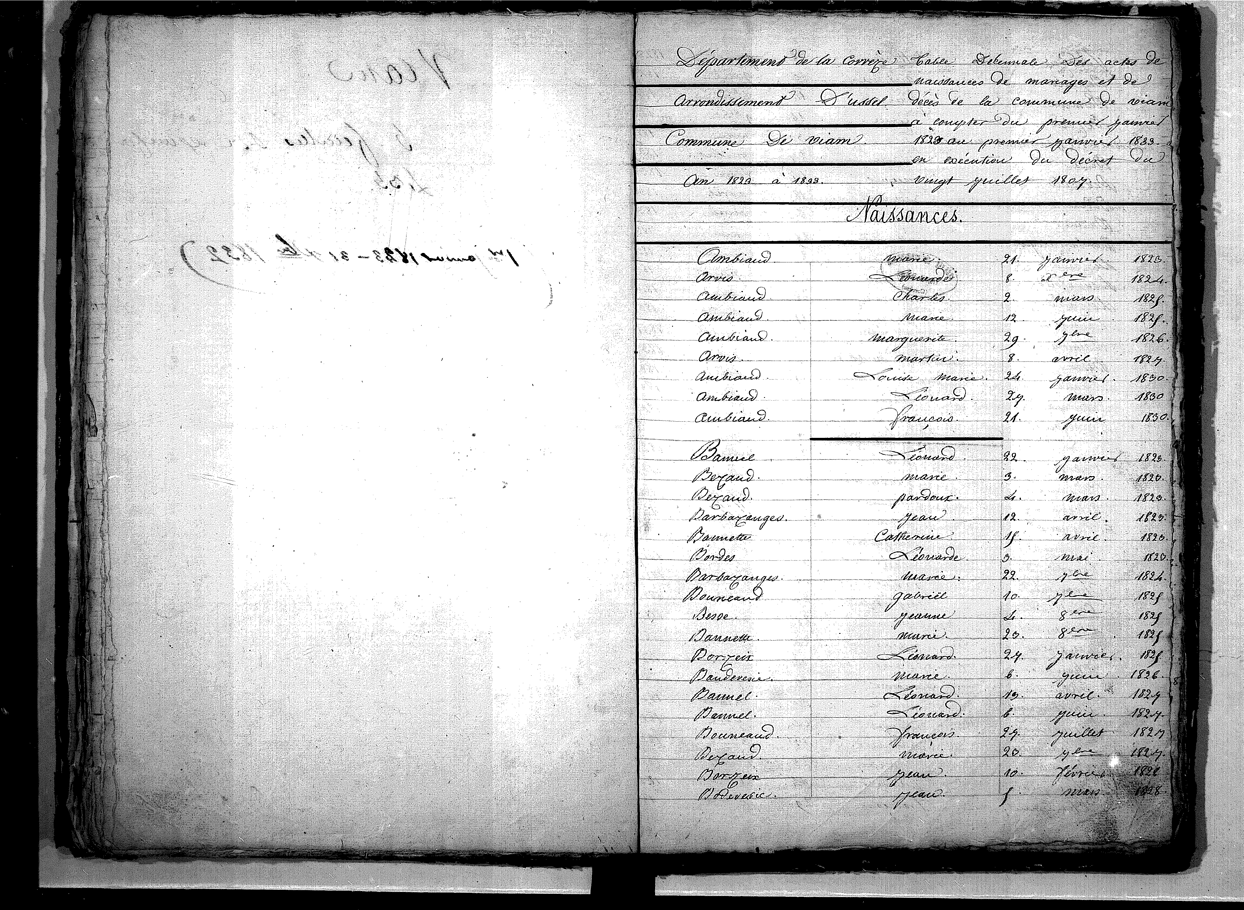 Viam
1er janvier 1823 - 31 Xbre 1832)
Département de la Corrèze
Arrondissement D'ussel
Commune De viam
An 1823 à 1833.
Table Décennale des actes de
naissances de mariages et de
décès de la commune de viam
à compter du premier janvier
1823 au premier janvier 1833
en exécution du décret du
vingt juillet 1807
Naissances.
Ambiaud marie 21 janvier 1823.
Arvis Léonarde 8 Xbre 1824.
Ambiaud Charles 2 mars 1825.
Ambiaud marie 12 juin 1825.
Ambiaud marguerite 29 7bre 1826.
Arvis martin 8 avril 1827
Ambiaud Louise marie 24 janvier 1830
Ambiaud Léonard 27 mars 1830
Ambiaud françois 21 juin 1830
Bamiel Léonard 22 janvier 1823
Bezaud marie 3 mars 1823.
Bezaud pardoux 4 mars 1823
Barbazanges jean 12 avril 1823
Bannette Catherine 15 avril 1823
Bordes Léonarde 3 mai 1823
Barbazanges marie 22 7bre 1824
Bouneaud gabriel 10 7bre 1825
Besse jeanne 4 8bre 1825
Bannette marie 23 8bre 1825
Borzeix Léonard 27 janvier 1825
Bauderesie marie 6 juin 1826
Bamiel Léonard 19 avril 1827
Bamiel Léonard 6 juin 1827
Bouneaud françois 27 juillet 1827
Bezaud marie 20 7bre 1827
Borzeix jean 10 février 1828
Boderesie jean 5 mars 1828